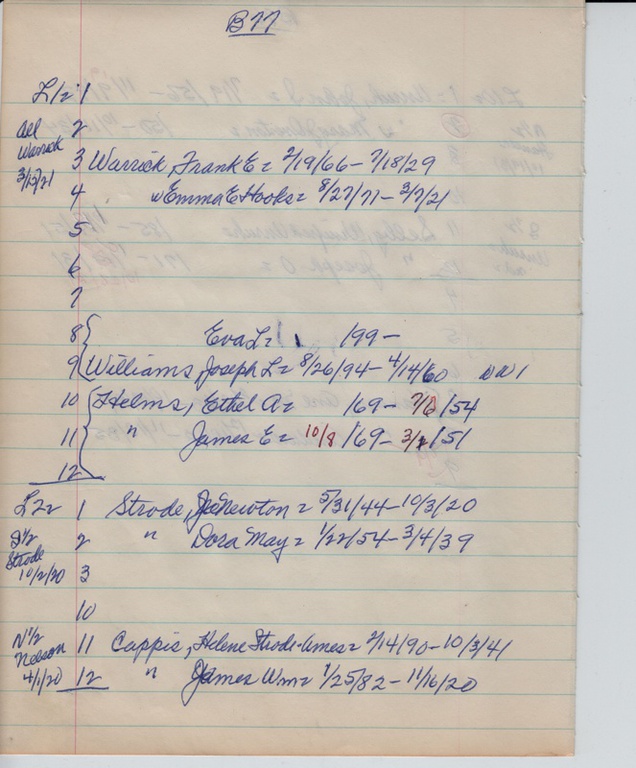 B77
L12 1
All 2
Warrick
3/12/21 3 Warrick, Frank E = 2/19/66 - 7/18/29
4 w Emma E Hooks = 8/27/71 - 3/7/21
5
6
7
8 Eva L = 199 -
9 Williams, Joseph L = 8/26/94 - 4/14/60 WW1
10 Helms, Ethel A = 169 - /54
11 " James E = 10/8/69 - /51
12
L22 1 Strode, Newton = 5/31/44 - 10/3/20
S 1/2 2 " Dora May = 1/22/54 - 3/4/39
Strode
10/2/20 3
10
N 1/2 11 Cappis, Helene Strode-Ames = 2/14/90 - 10/3/41
Nelson
4/1/20 12 " James Wm = 1/25/82 - 11/16/20